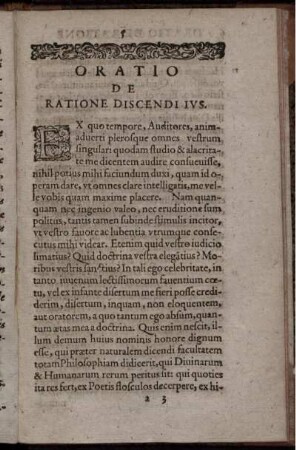 5
ORATIO
DE
RATIONE DISCENDI IVS.
EX quo tempore, Auditores, anim-
aduerti plerosque omnes vestrum
singulari quodam studio & alacrita-
te me dicentem audire consueuisse,
nihil potius mihi faciundum duxi, quam id o-
peram dare, vt omnes clare intelligatis, me vel-
le vobis quam maxime placere. Nam quan-
quam nec ingenio valeo, nec eruditione sum
politus, tantis tamen subinde stimulis incitor,
vt vestro fauore ac lubentia vtrumque conse-
cutus mihi videar. Etenim quid vestro iudicio
limatius? Quid doctrina vestra elegatius? Mo-
ribus vestris sanctius? In tali ego celebritate, in
tanto iuuenum lectissimorum fauentium cœ-
tu, vel ex infante disertum me fieri posse credi-
derim, disertum, inquam, non eloquentem,
aut oratorem, a quo tantum ego absum, quan-
tum ætas mea a doctrina. Quis enim nescit, il-
lum demum huius nominis honore dignum
esse, qui præter naturalem dicendi facultatem
totam Philosophiam didicerit, qui Diuinarum
& Humanarum rerum peritus sit: qui quoties
ita res fert, ex Poetis flosculos decerpere, ex hi-
a 3